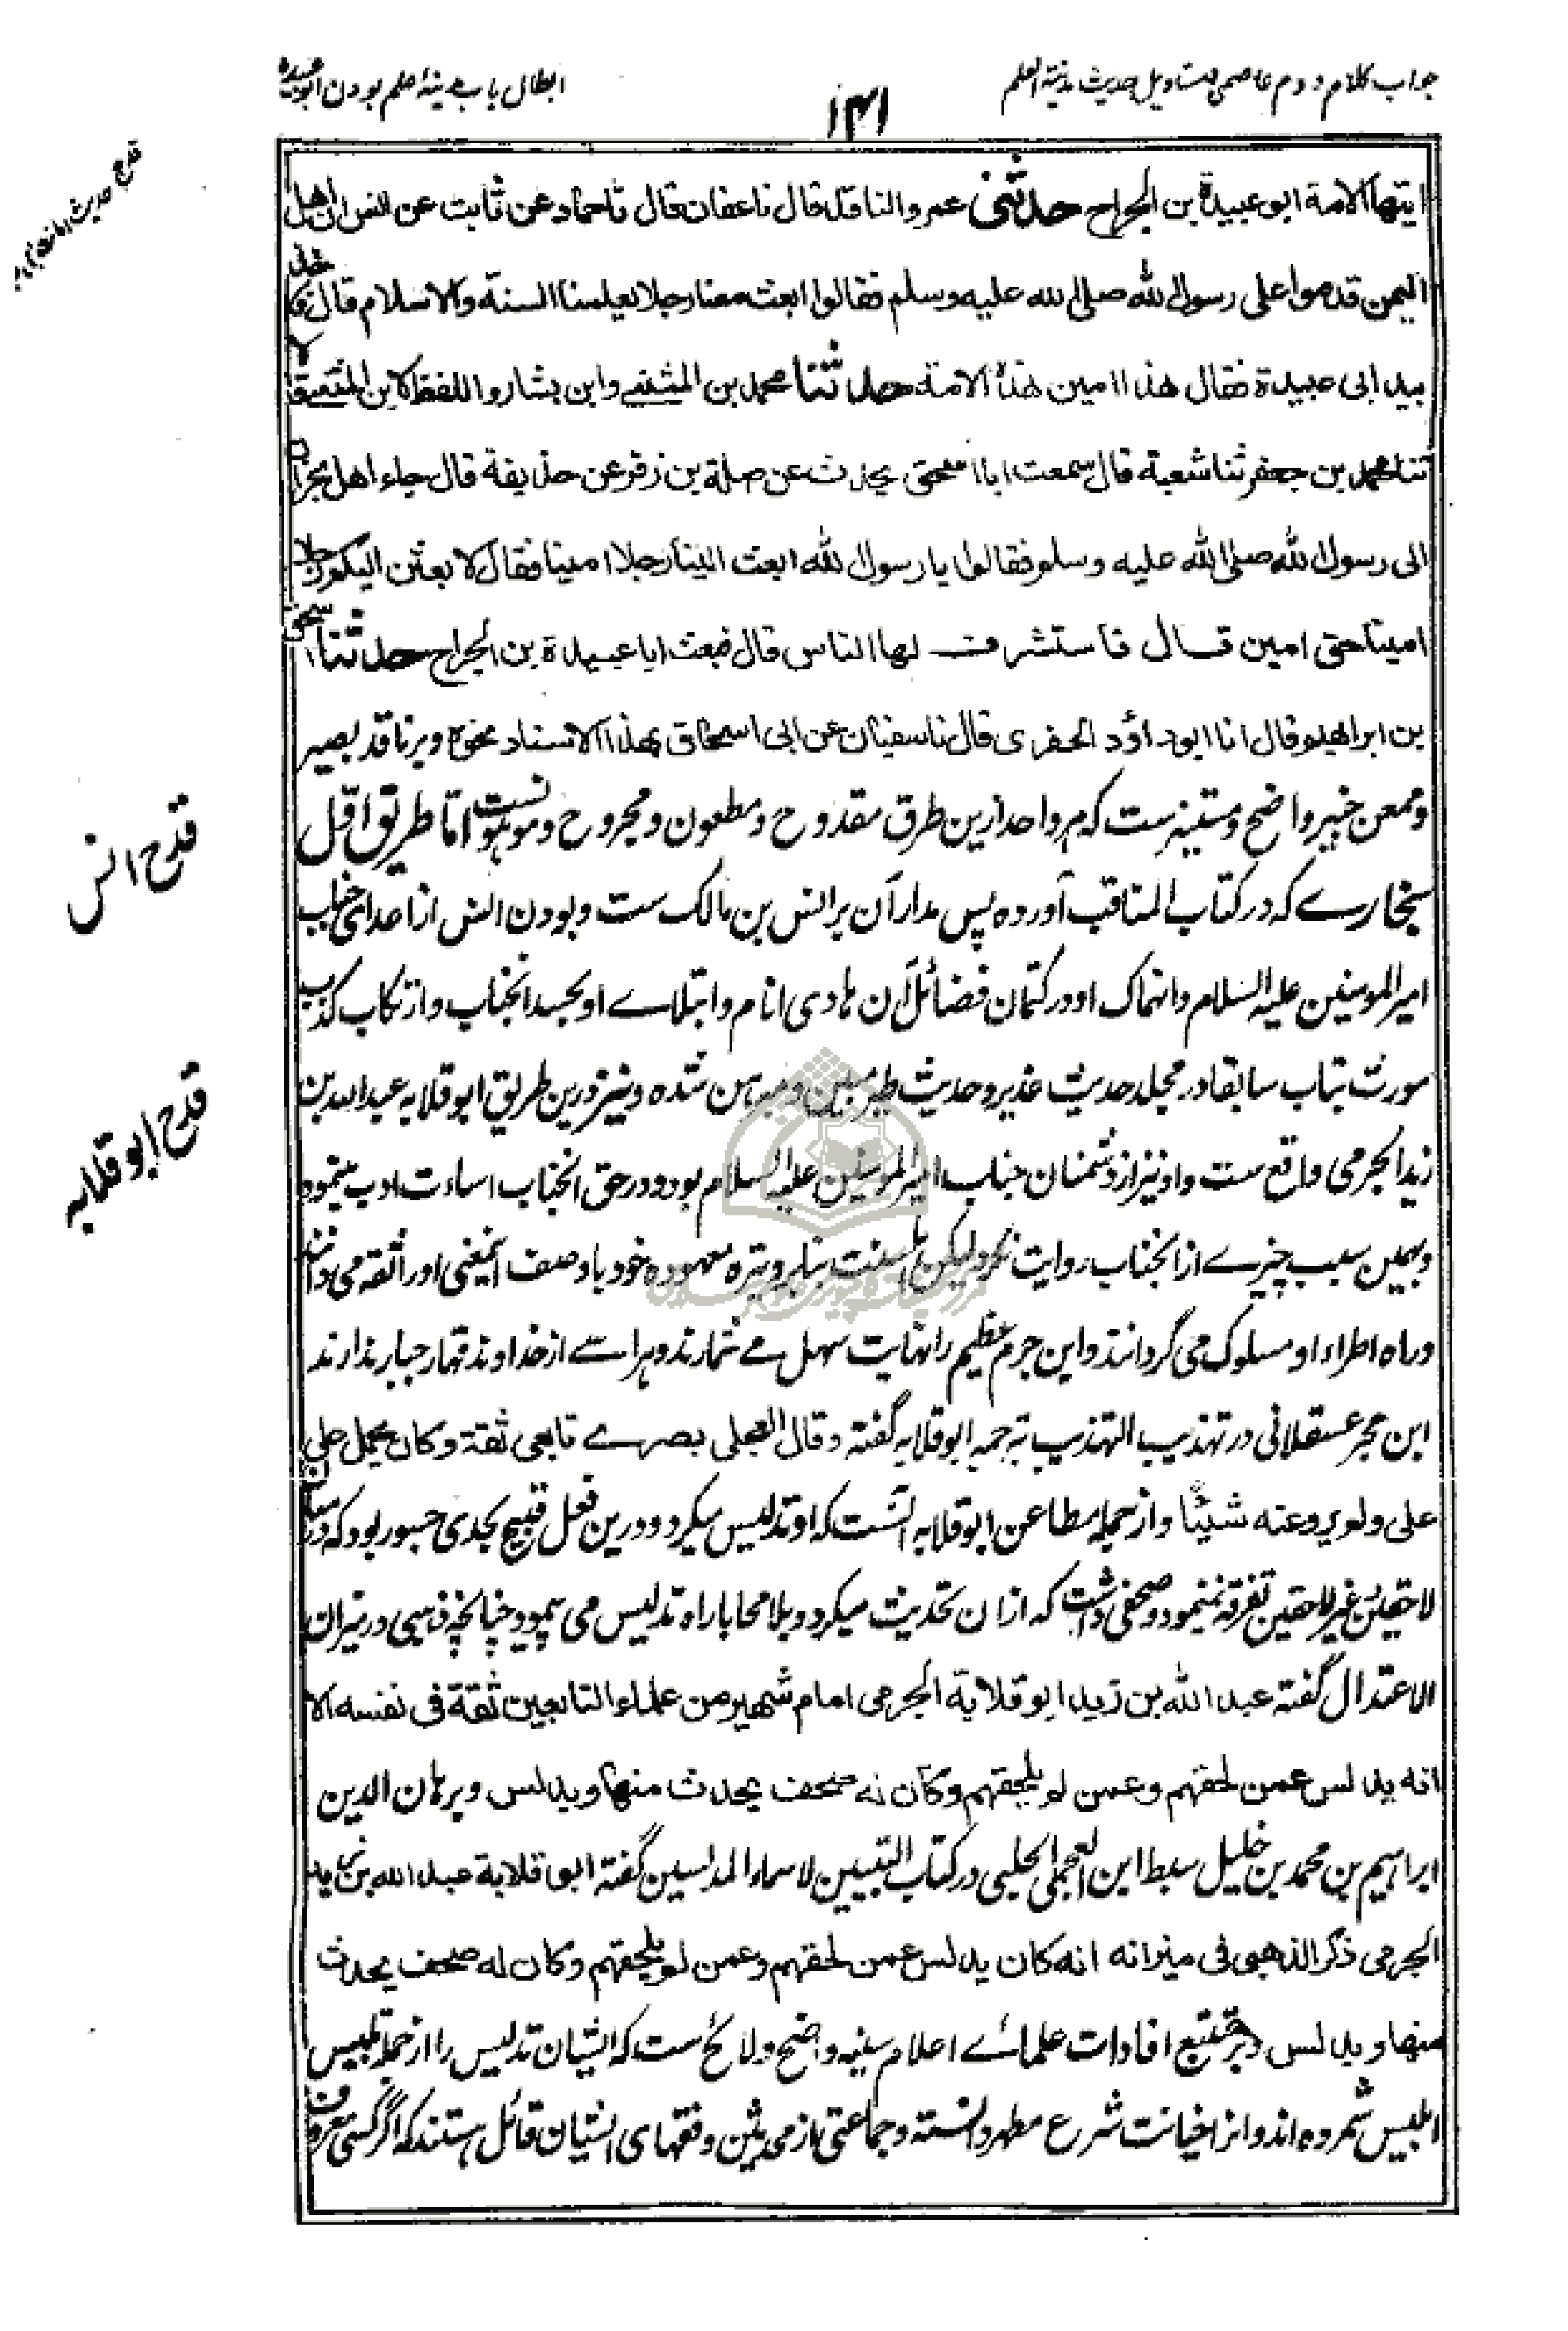 جواب کلام دوم عاصمی در تاویل حدیث مدینة العلم
۱۴۱
ابطال باب مدینۀ علم بودن ابو عبیده
قدح حدیث
ایتها الامة ابو عبیدة بن الجراح حدثنی عمرو الناقد قال نا عفان قال نا حماد عن ثابت عن انس ان اهل
الیمن قدموا علی رسول الله صلی الله علیه وسلم فقالوا ابعث معنا رجلا یعلمنا السنة والاسلام قال فاخذ
بید ابی عبیدة فقال هذا امین هذه الامة حدثنا محمد بن المثنی وابن بشار واللفظ لابن المثنی قالا
ثنا محمد بن جعفر ثنا شعبة قال سمعت ابا اسحق یحدث عن صلة بن زفر عن حذیفة قال جاء اهل نجران
الی رسول الله صلی الله علیه وسلم فقالوا یا رسول الله ابعث الینا رجلا امینا فقال لابعثن الیکم رجلا
امینا حق امین قال فاستشرف لها الناس قال فبعث ابا عبیدة بن الجراح حدثنا اسحق
بن ابراهیم قال انا ابو داؤد الحفری قال نا سفیان عن ابی اسحاق بهذا الاسناد نحوه وبر ناقد بصیر
وممعن خبیر واضح ومستنیرست که هر واحد ازین طرق مقدوح ومطعون ومجروح وموهونست اما طریق اول
بخاری که در کتاب المناقب آورده پس مدار آن بر انس بن مالک ست وبودن انس از اعدای جناب
قدح انس
امیر المومنین علیه السلام وانهماک او در کتمان فضائل آن هادی انام وابتلاے او بحسد آنجناب وارتکاب کذب
سابقا در مجلد حدیث غدیر وحدیث طیر مبین ومبرهن شده ونیز درین طریق ابو قلابه عبد الله بن
قدح ابو قلابه
زید الجرمی واقع ست واو نیز از دشمنان جناب امیر المومنین علیه السلام بود ودر حق آنجناب اساءت ادب مینمود
وبهمین سبب چیزے از آنجناب روایت نکرد لیکن اهل سنت بنابر وتیره معهوده خود با وصف اینمعنی او را ثقه می دانند
وراه اطراء او مسلوک می گردانند واین جرم عظیم را نهایت سهل مے شمارند وهراسے از خداوند قهار جبار ندارند
ابن حجر عسقلانی در تهذیب التهذیب بترجمه ابو قلابه گفته وقال العجلی بصرے تابعی ثقة وکان یحمل علی
علی ولم یرو عنه شیئا واز جمله مطاعن ابو قلابه آنست که او تدلیس میکرد ودرین فعل قبیح بحدی جسور بود که در میان
لاحقین وغیر لاحقین تفرقه نمینمود وصحفی داشت که ازان تحدیث میکرد وبلا محابا راه تدلیس می پیمود چنانچه ذهبی در میزان
الاعتدال گفته عبد الله بن زید ابو قلابة الجرمی امام شهیر من علماء التابعین ثقة فی نفسه الا
انه یدلس عمن لحقهم وعمن لم یلحقهم وکان له صحف یحدث منها ویدلس وبرهان الدین
ابراهیم بن محمد بن خلیل سبط ابن العجمی الحلبی در کتاب التبیین لاسماء المدلسین گفته ابو قلابة عبد الله بن زید
الجرمی ذکر الذهبی فی میزانه انه کان یدلس عمن لحقهم وعمن لم یلحقهم وکان له صحف یحدث
منها ویدلس وبر متتبع افادات علمائے اعلام سنیه واضح ولائح ست که ایشان تدلیس را از جمله تلبیس
ابلیس شمرده اند وانرا خیانت شرع مطهر دانسته وجماعتی از محدثین وفقهای ایشان قائل هستند که اگر کسی معروف